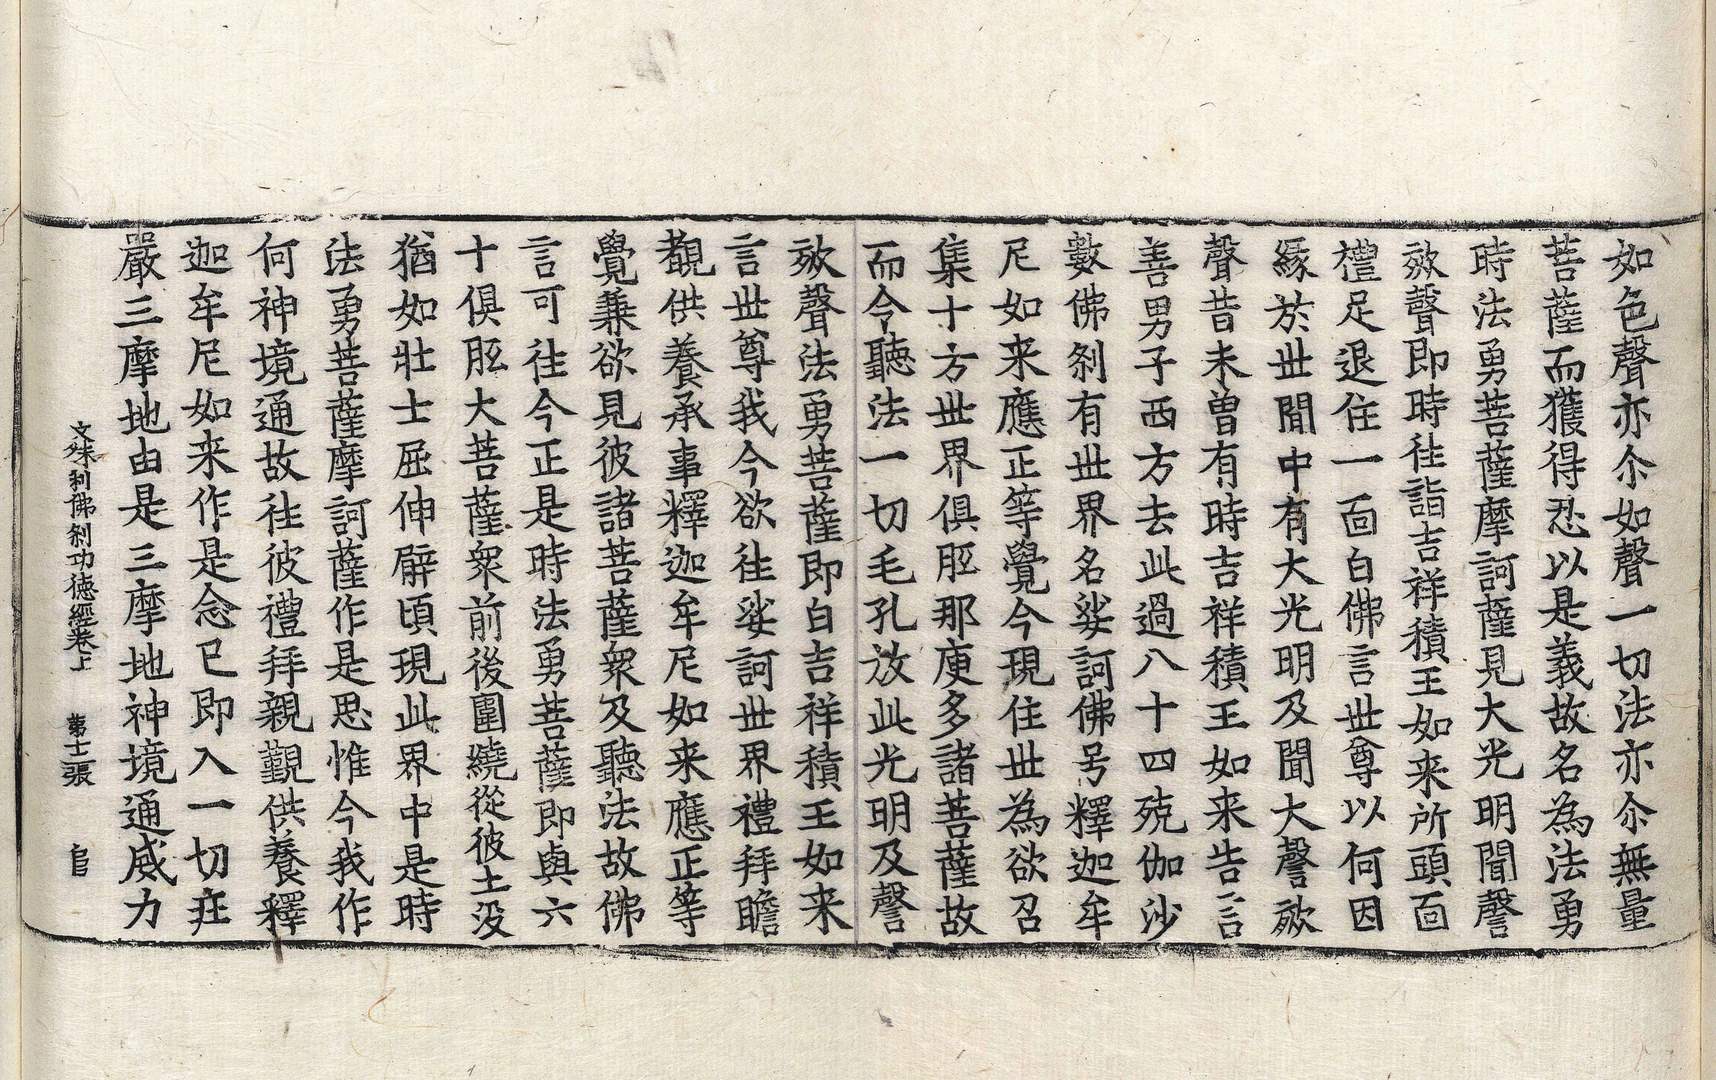 如色聲亦尒如聲一切法亦尒無量
菩薩而獲得忍以是義故名為法勇
時法勇菩薩摩訶薩見大光明聞謦
欬聲即時往詣吉祥積王如来所頭面
禮足退住一面白佛言世尊以何因
緣於世間中有大光明及聞大謦欬
聲昔未曽有時吉祥積王如来告言
善男子西方去此過八十四殑伽沙
數佛刹有世界名娑訶佛号釋迦牟
尼如来應正等覺今現住世為欲召
集十方世界俱胝那庾多諸菩薩故
而令聽法一切毛孔放此光明及謦
欬聲法勇菩薩即白吉祥積王如来
言世尊我今欲往娑訶世界禮拜瞻
覩供養承事釋迦牟尼如来應正等
覺兼欲見彼諸菩薩衆及聽法故佛
言可往今正是時法勇菩薩即與六
十俱胝大菩薩衆前後圍繞從彼土没
猶如壯士屈伸臂頃現此界中是時
法勇菩薩摩訶薩作是思惟今我作
何神境通故往彼禮拜親覲供養釋
迦牟尼如来作是念已即入一切莊
嚴三摩地由是三摩地神境通威力
文殊刹佛刹功德經卷上 第十二張 官